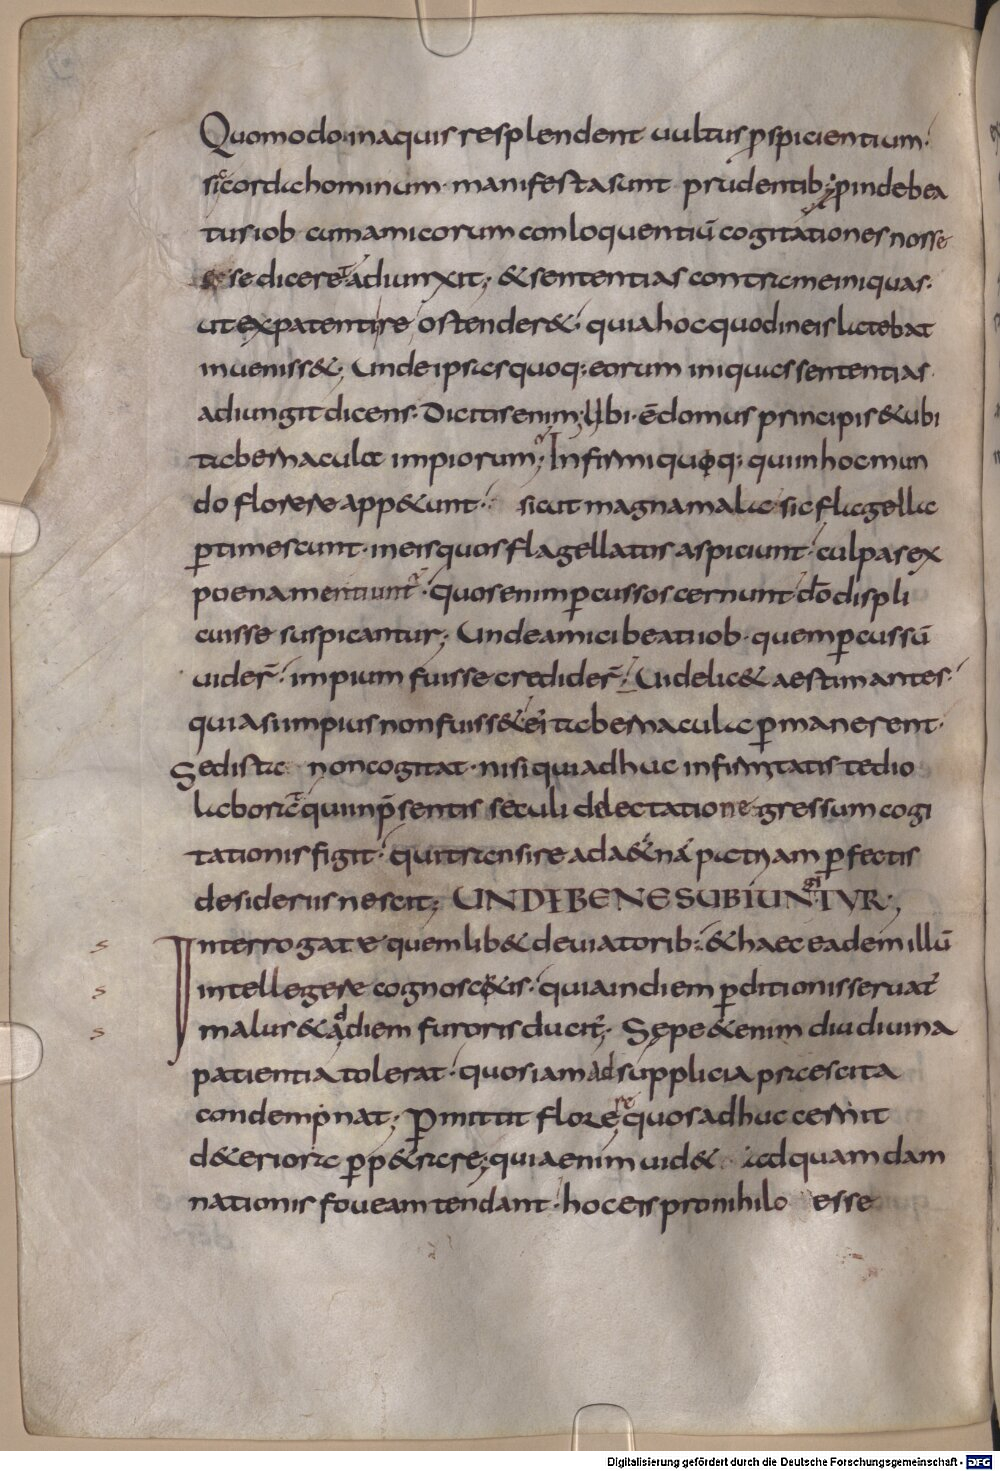 Quomodo inaquis resplendent uultus p̱spicientium·
sic corda hominum· manifesta sunt prudentib; pindebea
tus iob cum amicorum conloquentiū cogitationes nosse
se dicere& adiunxit; & sententias contra me iniquas·
ut ex patenti re ostender&· quia hoc quod in eis latebat
inueniss&; Unde ipsas quoq; eorum iniquas sententias·
adiungit dicens· Dicitis enim; Ubi ē domus principis & ubi
tabernacula impiorum; Infirmi quoq; qui in hoc mun
do florere app&unt· sicut magna mala sic flagella
p̱timescunt· in eis quos flagellatos aspiciunt· culpas ex
poena mentiunt᷒· quos enim p̱cussos cernunt dō displi
cuisse suspicantur; Unde amici beati iob· quem p̱cussū
uider̄· impium fuisse credider̄; Uidelic& aestimantes·
quia si impius non fuiss& ei tabernacula p̱manerent·
Sed ista non cogitat· nisi qui adhuc infirmitatis tedio
laborat qui in p̄sentis seculi delectatione gressum cogi
tationis figit· qui transire ad aet&nā patriam p̱fectis
desideriis nescit; UNDE BENE SUBIUNGITVR;
Interrogate quemlib& de uiatorib; & haec eadem illū
intellegere cognoscetis· quia in diem p̱ditionis seruat᷒
malus & ad diem furoris ducit᷒· Sepe & enim diu diuina
patientia tolerat· quos iam ad supplicia praescita
condempnat; P̱mittit florere quos adhuc cernit
d&eriora p̱p&rare; quia enim uid& ad quam dam
nationis foueam tendant· hoc eis pro nihilo esse
Digitalisierung gefördert durch die Deutsche Forschungsgemeinschaft - DFG